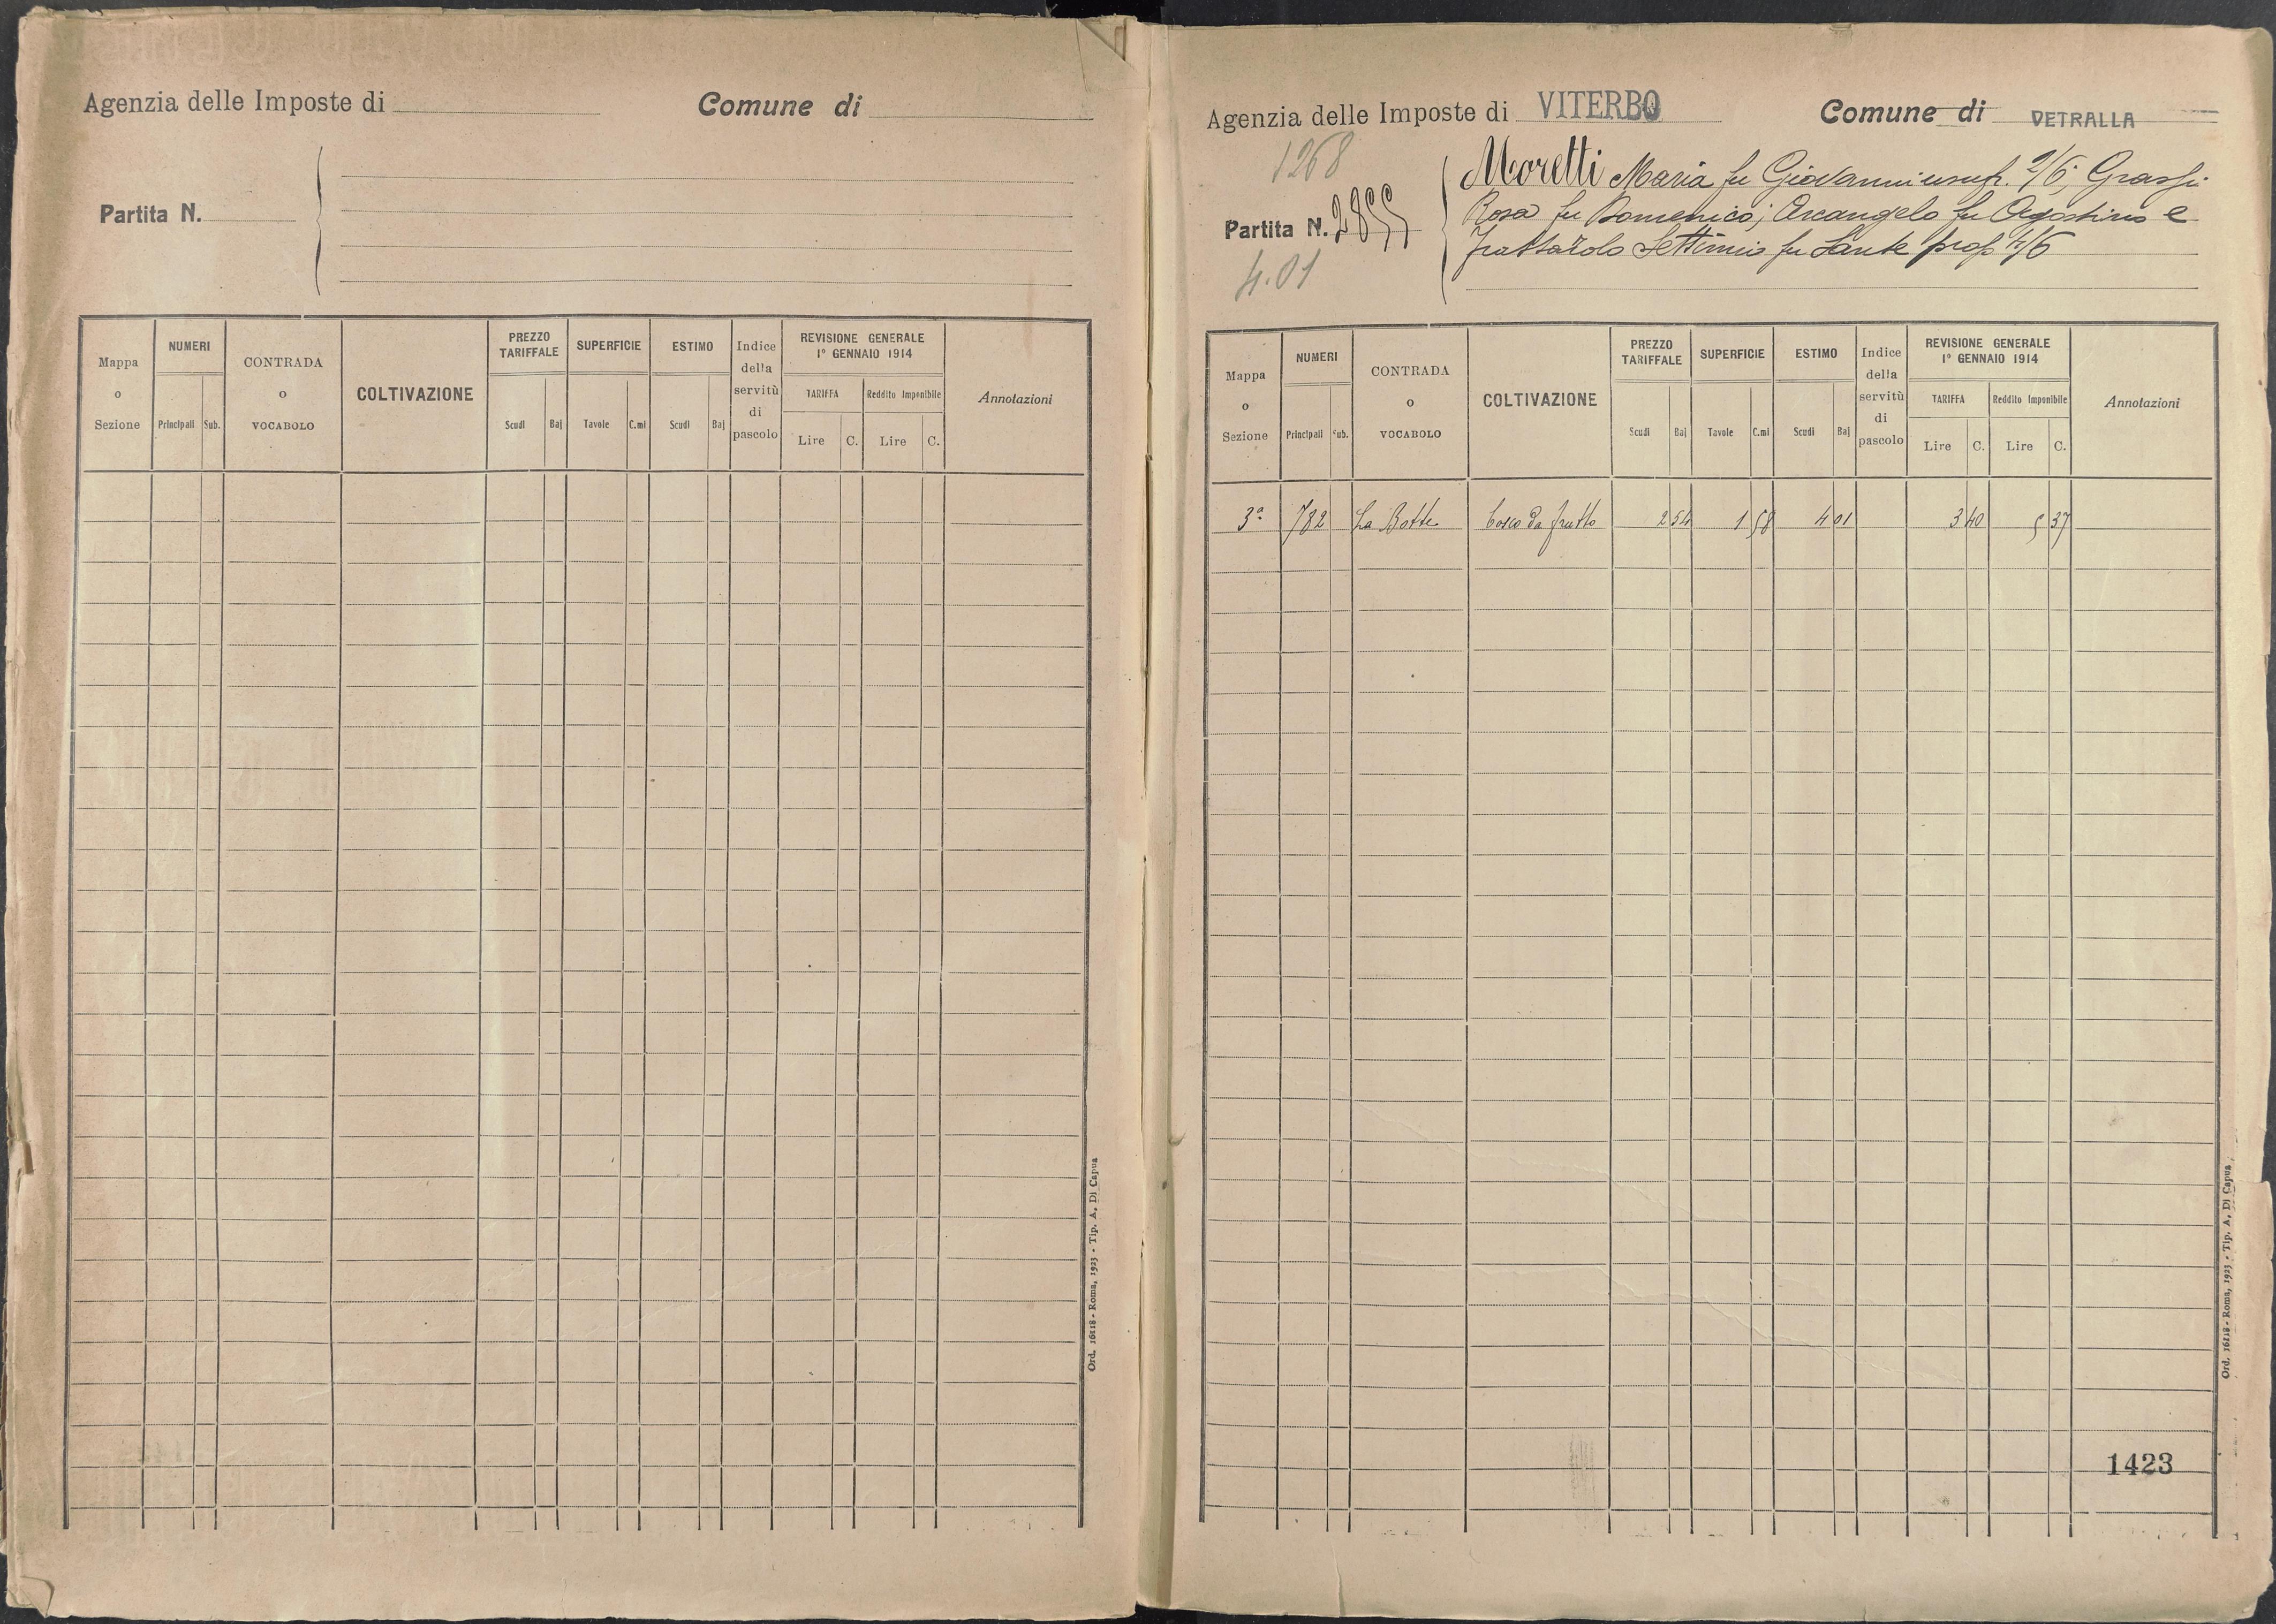 Agenzia delle Imposte di
Comune di
Partita N.
Mappa o Sezione
NUMERI
Principali Sub.
CONTRADA o VOCABOLO
COLTIVAZIONE
PREZZO TARIFFALE
Scudi Baj
SUPERFICIE
Tavole C.mi
ESTIMO
Scudi Baj
Indice della servitù di pascolo
REVISIONE GENERALE
1° GENNAIO 1914
TARIFFA
Lire C.
Reddito Imponibile
Lire C.
Annotazioni
Ord. 16118 - Roma, 1923 - Tip. A. Di Capua
Agenzia delle Imposte di VITERBO
Comune di VETRALLA
1268
Partita N. 2855
4.01
Moretti Maria fu Giovanni usuf. 2/6; Grassi
Rosa fu Domenico; Arcangelo fu Agostino e
Frattarolo Settimio fu Sante prop
Mappa o Sezione
NUMERI
Principali Sub.
CONTRADA o VOCABOLO
COLTIVAZIONE
PREZZO TARIFFALE
Scudi Baj
SUPERFICIE
Tavole C.mi
ESTIMO
Scudi Baj
Indice della servitù di pascolo
REVISIONE GENERALE
1° GENNAIO 1914
TARIFFA
Lire C.
Reddito Imponibile
Lire C.
Annotazioni
3ª 782 La Botte bosco da frutto 2 54 1 58 4 01 3 40 5 37
1423
Ord. 16118 - Roma, 1923 - Tip. A. Di Capua